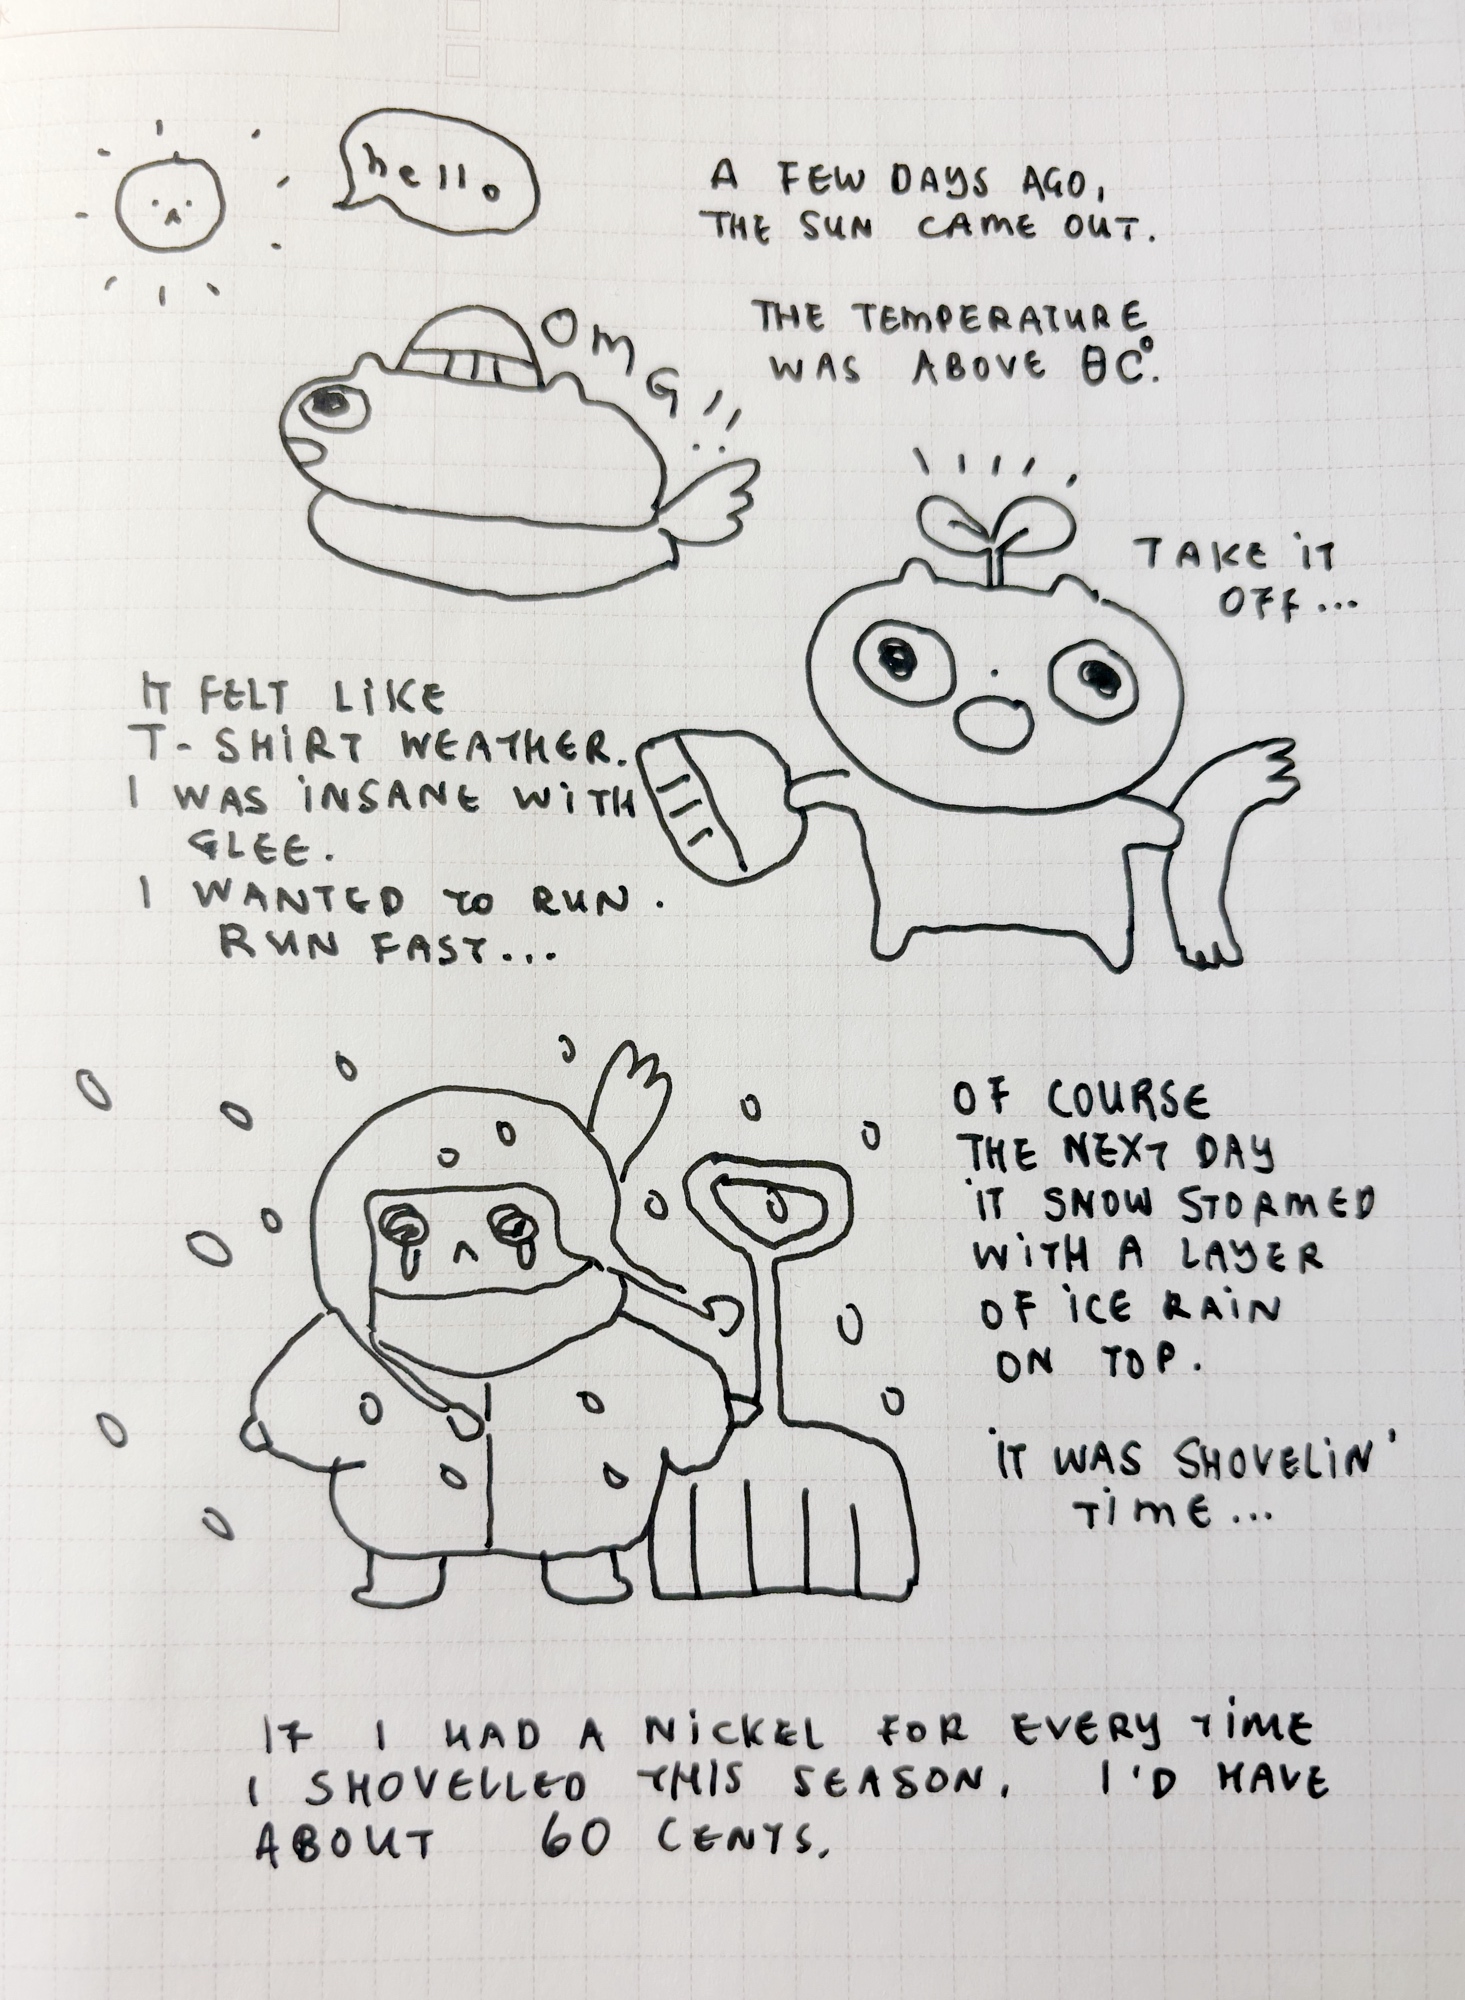 hello
A FEW DAYS AGO,
THE SUN CAME OUT.
OMG!!
THE TEMPERATURE
WAS ABOVE 0C°.
TAKE IT
OFF...
IT FELT LIKE
T-SHIRT WEATHER.
I WAS INSANE WITH
GLEE.
I WANTED TO RUN.
RUN FAST...
OF COURSE
THE NEXT DAY
IT SNOW STORMED
WITH A LAYER
OF ICE RAIN
ON TOP.
IT WAS SHOVELIN'
TIME...
IF I HAD A NICKEL FOR EVERY TIME
I SHOVELLED THIS SEASON, I'D HAVE
ABOUT 60 CENTS.